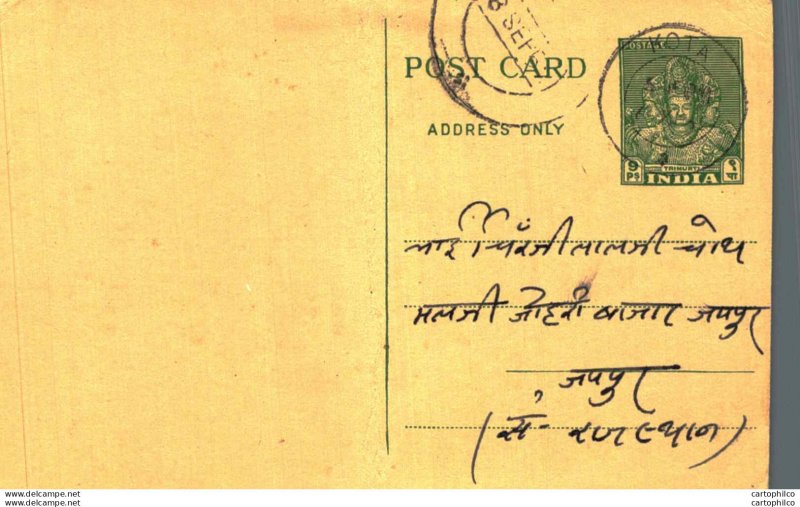 8 SEP
KOTA
POSTAGE
POST CARD
ADDRESS ONLY
TRIMURTI
9 PS INDIA ९ पा
भाई चिरंजीलालजी चोथ
मलजी जोहरी बाजार जयपुर
जयपुर
(सं. राजस्थान)
www.delcampe.net
cartophilco
www.delcampe.net
cartophilco